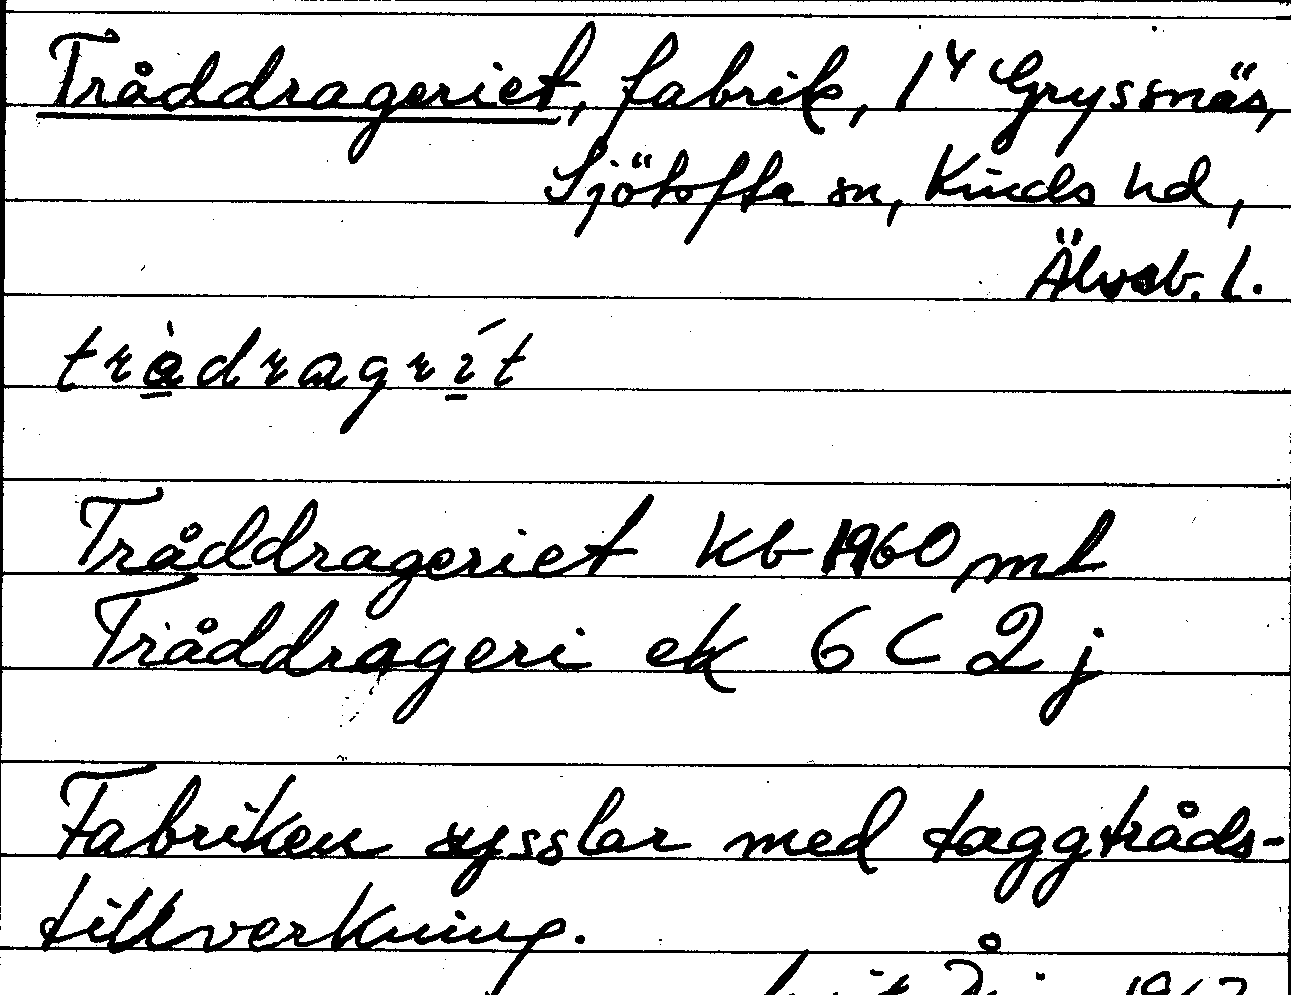 Tråddrageriet, fabrik, 1⁴ Gryssnäs,
Sjötofta sn, Kinds hd,
Älvsb. l.
Tråddrageriet Kb 1960, mt
Tråddrageri ek 6 C 2 j
Fabriken sysslar med taggtråds-
tillverkning.